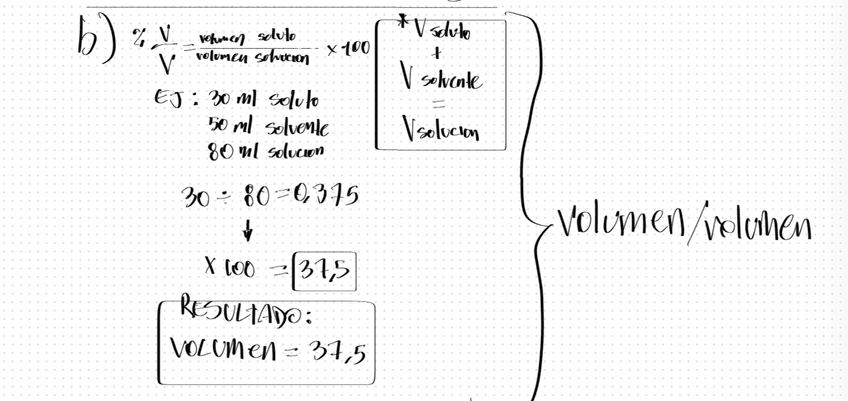 b) % V/V = volumen soluto / volumen solucion x 100
* V soluto
+
V solvente
=
V solucion
EJ: 30 ml soluto
50 ml solvente
80 ml solucion
30 ÷ 80 = 0,375
↓
x 100 = 37,5
RESULTADO:
VOLUMEN = 37,5
volumen/volumen